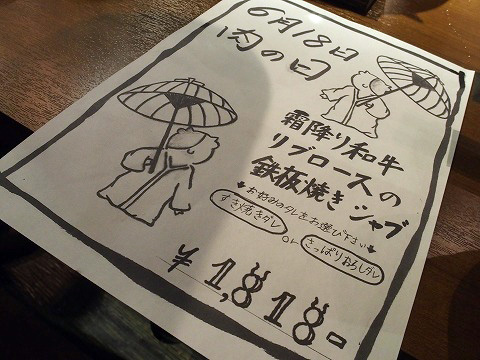 6月18日
肉の日
霜降り和牛
リブロースの
鉄板焼きシャブ
お好みのタレをお選び下さい
すき焼きダレ or さっぱりおろしダレ
¥1,818-